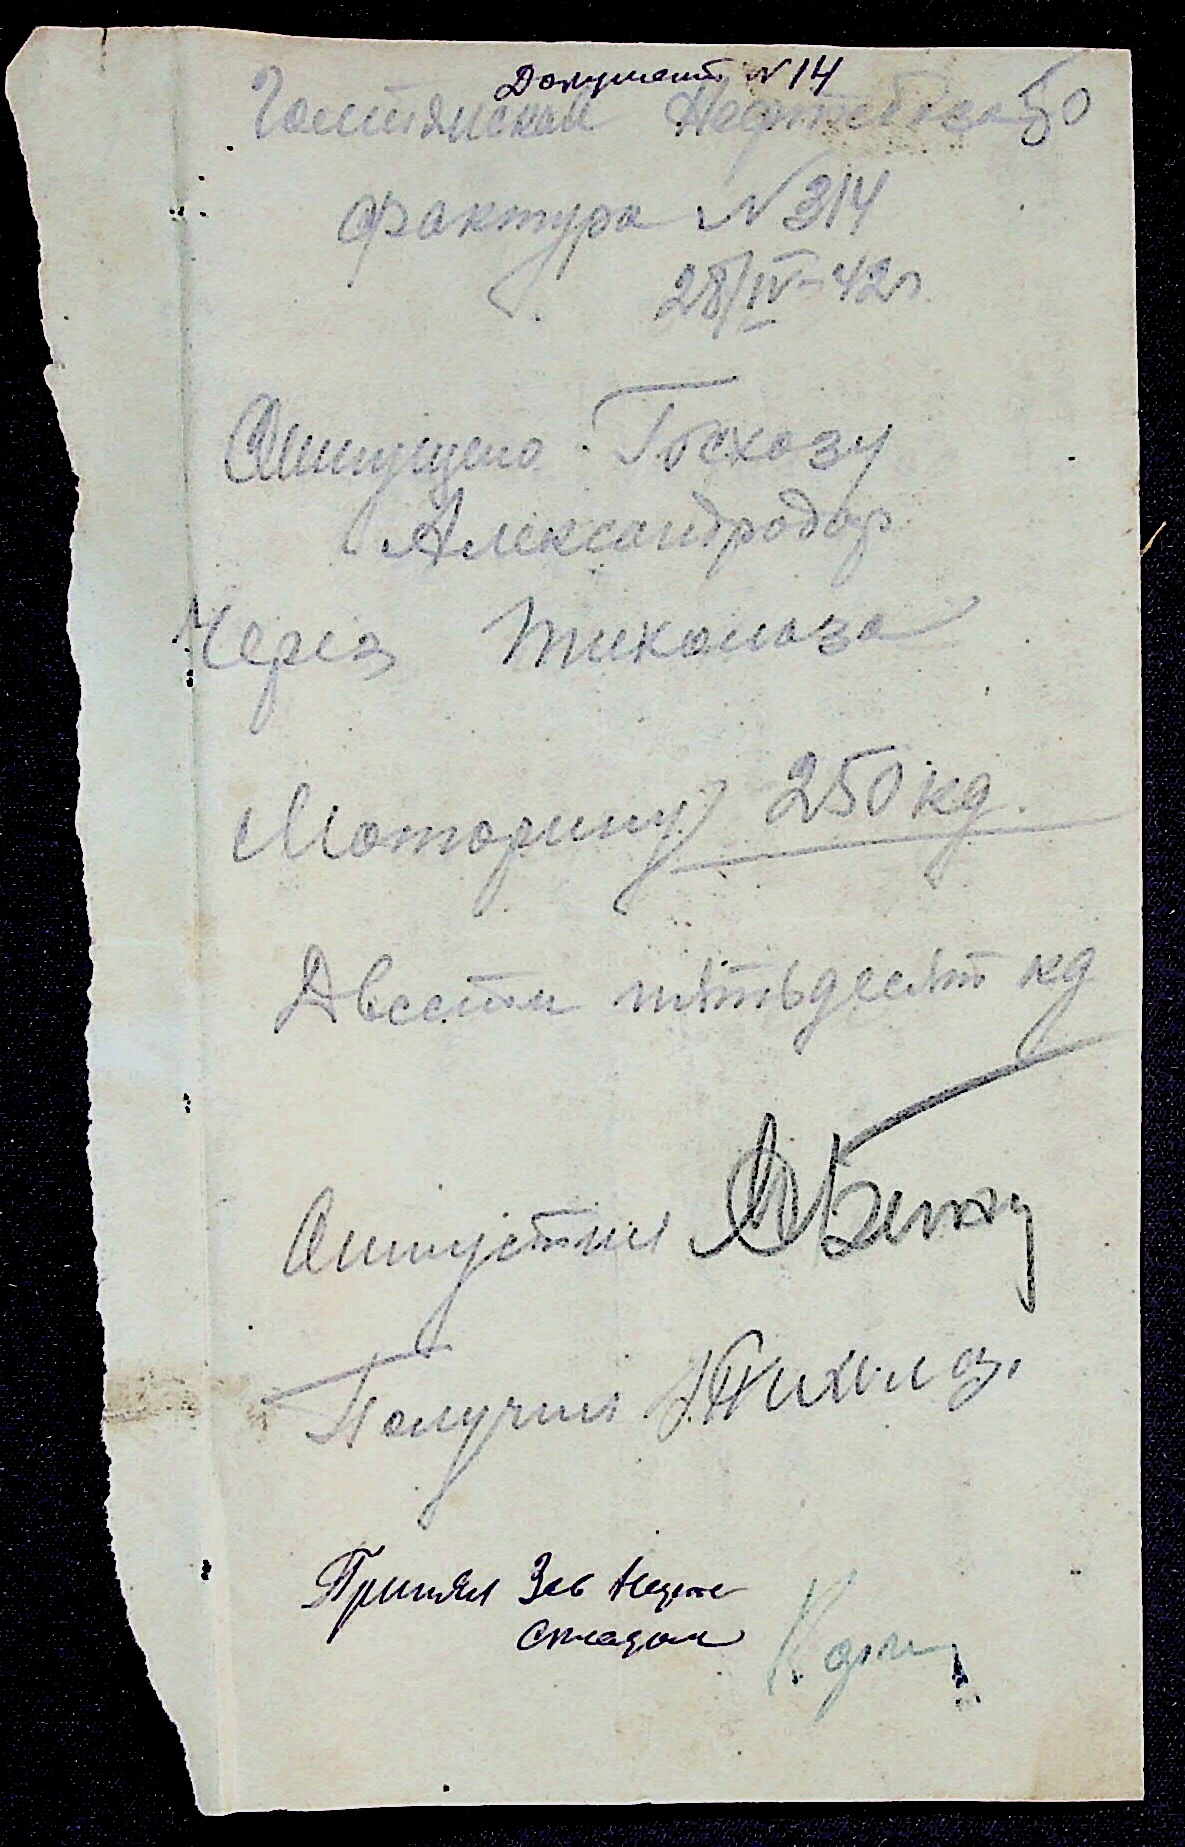 Документ N 14
Нефтебаза 50
Фактура N 314
28/IV-42г.
Отпущено Госхозу
Александродар
Через Тихолаза
Моторину 250 кг.
Двести пятьдесят кг
Отпустил
Получил Тихолаз.
Принял Зав Нефте
складом